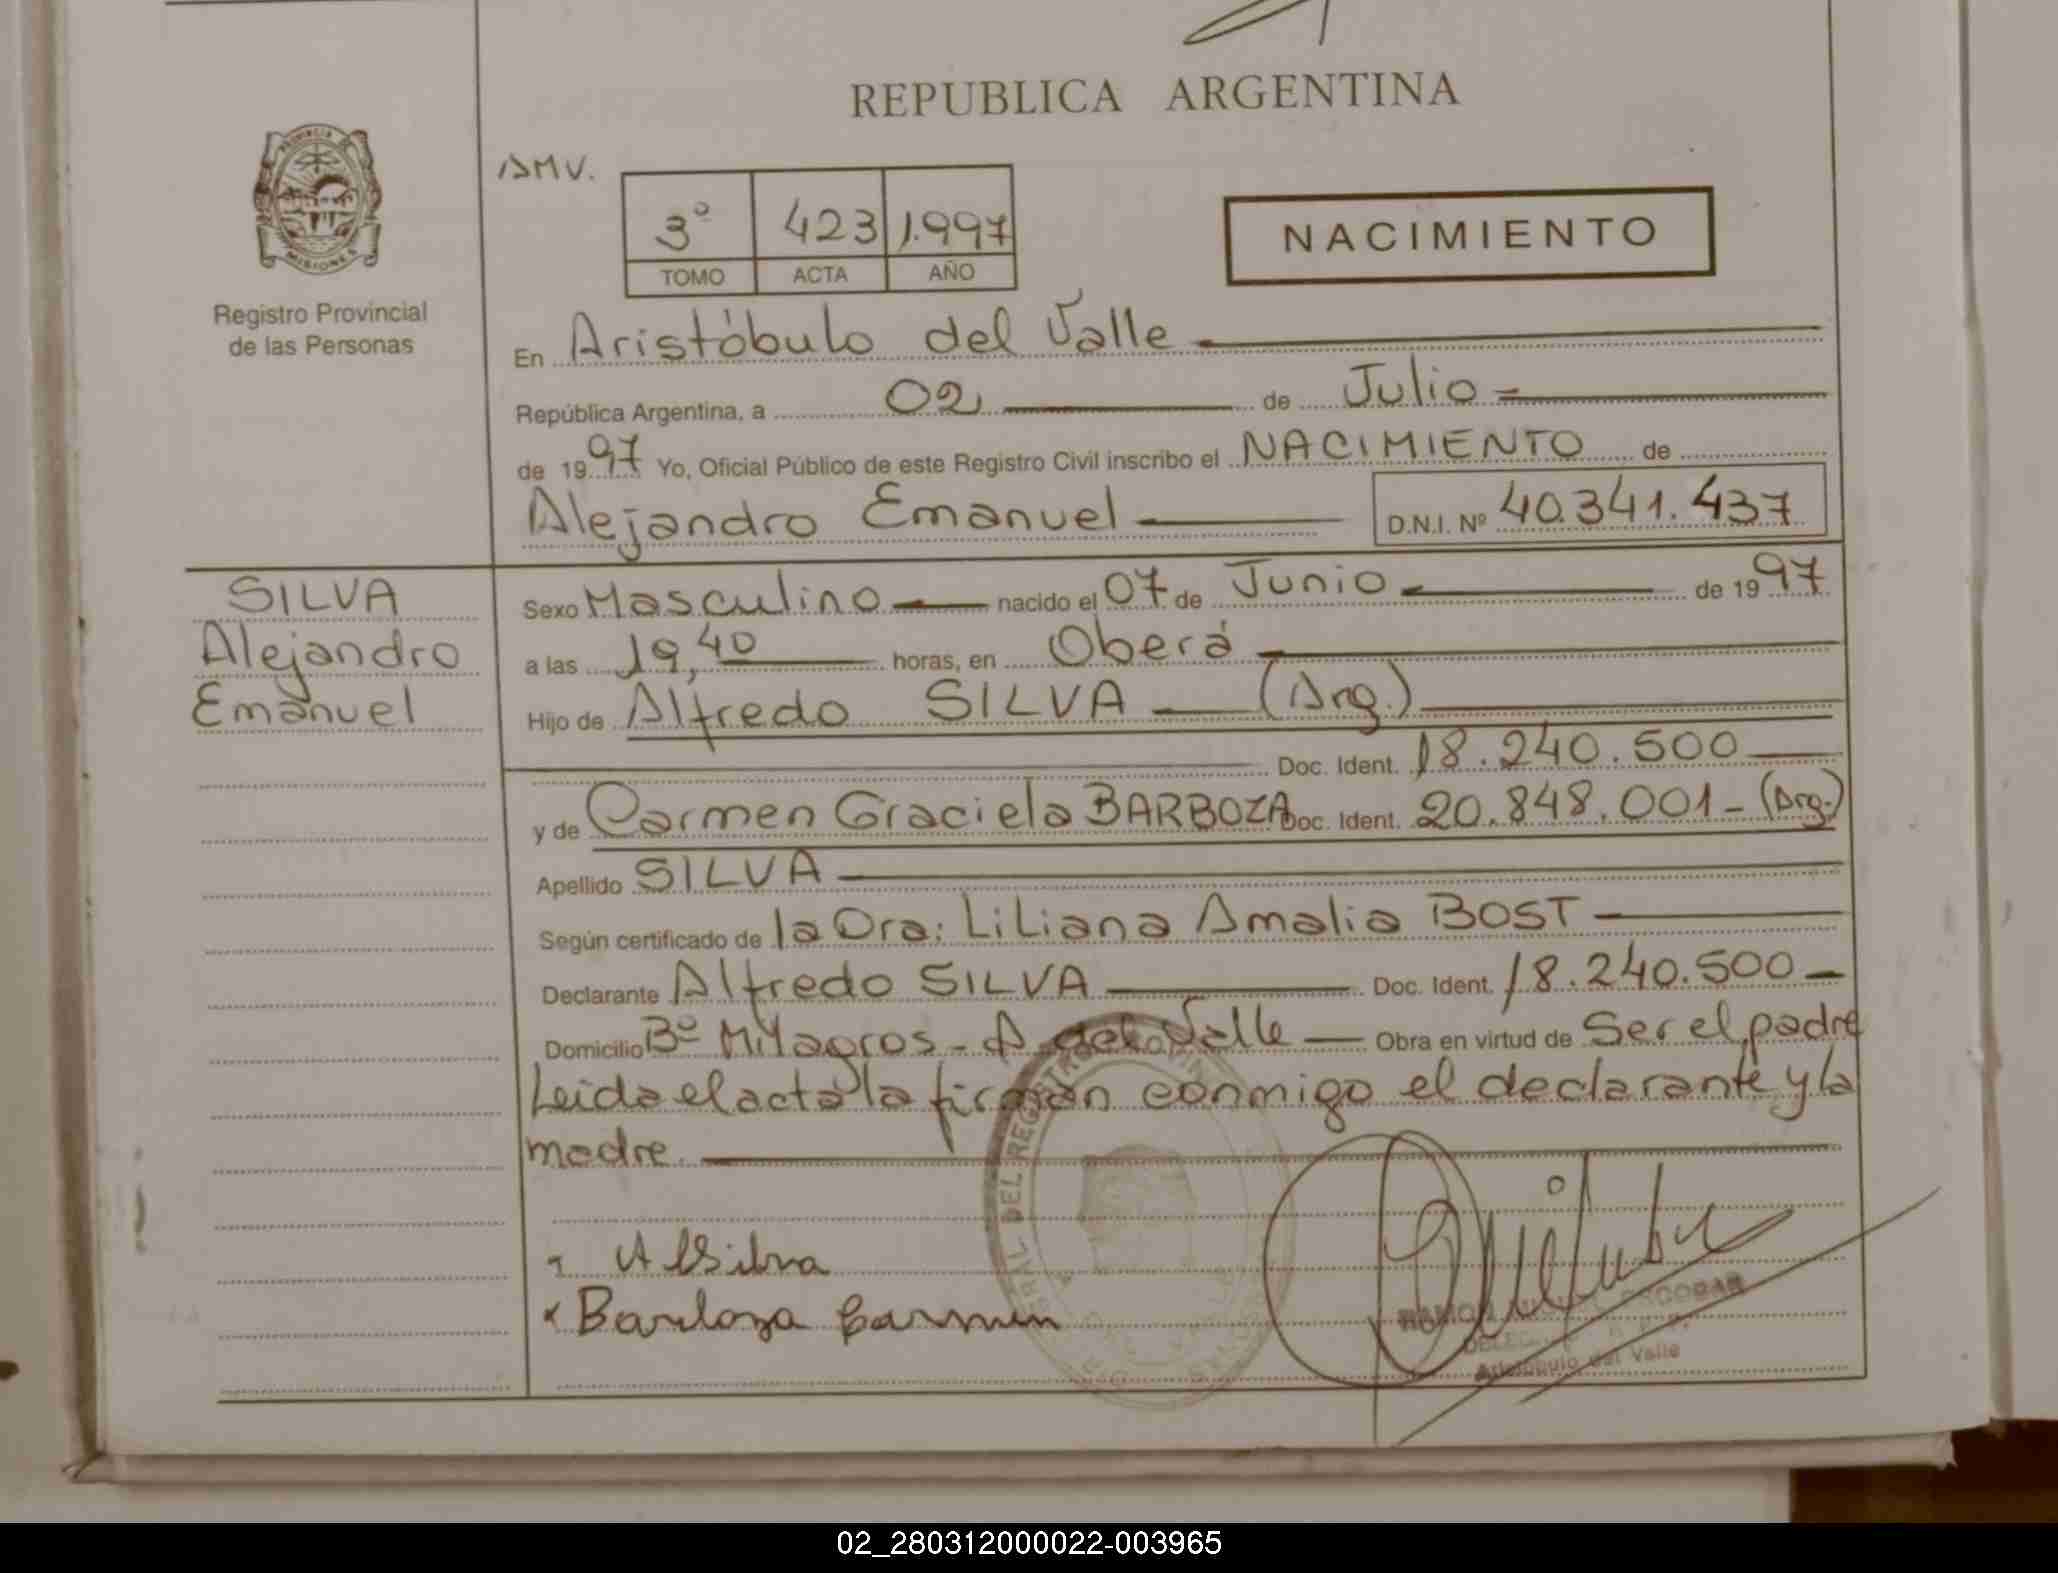 REPUBLICA ARGENTINA
PROVINCIA DE
MISIONES
Registro Provincial
de las Personas
AMV.
3º 423 1.997
TOMO ACTA AÑO
NACIMIENTO
En Aristóbulo del Valle
República Argentina, a 02 de Julio
de 1997 Yo, Oficial Público de este Registro Civil inscribo el NACIMIENTO de
Alejandro Emanuel D.N.I. Nº 40.341.437
SILVA
Alejandro
Emanuel
Sexo Masculino nacido el 07 de Junio de 1997
a las 19,40 horas, en Oberá
Hijo de Alfredo SILVA (Arg.)
Doc. Ident. 18.240.500
y de Carmen Graciela BARBOZA Doc. Ident. 20.848.001- (Arg.)
Apellido SILVA
Según certificado de la Dra: Liliana Amalia BOST
Declarante Alfredo SILVA Doc. Ident. 18.240.500
Domicilio Bº Milagros - A. del Valle Obra en virtud de Ser el padre
Leida el acta la firman conmigo el declarante y la
madre.
A Silva
Barboza Carmen
DEL REGISTRO
RAMON ESCOBAR
Aristóbulo del Valle
02_280312000022-003965